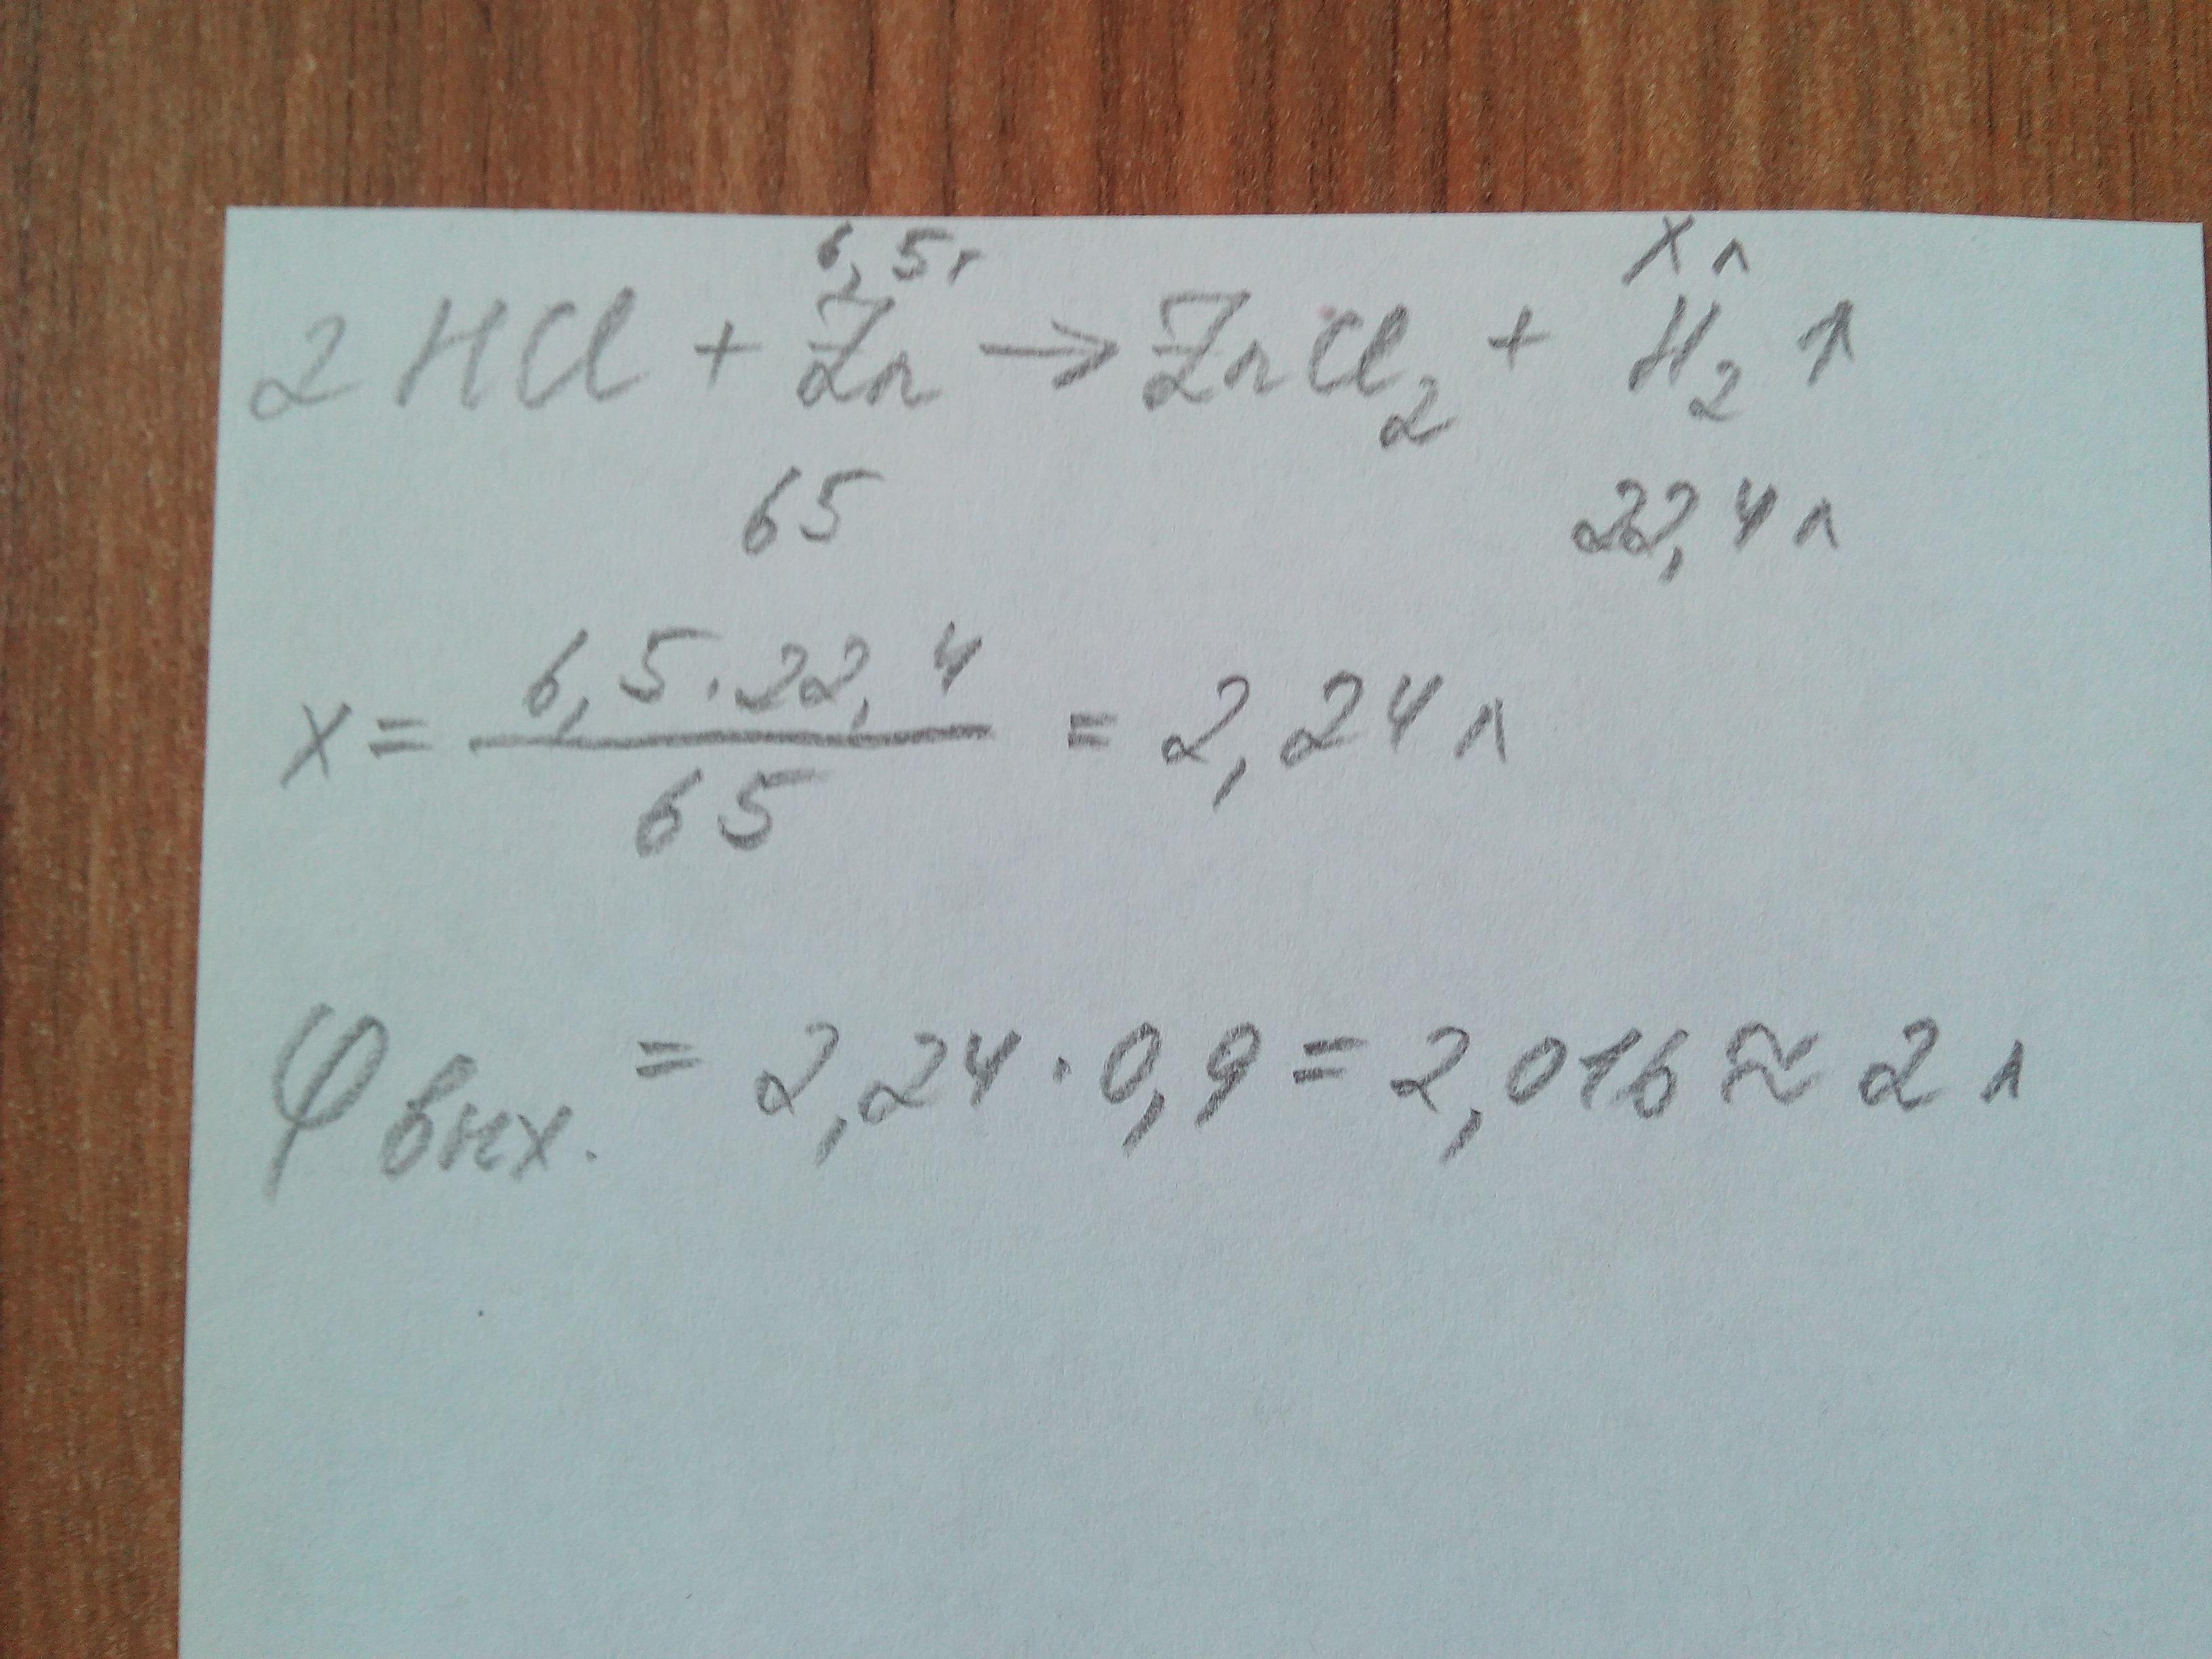 6,5г х л
2HCl + Zn → ZnCl₂ + H₂ ↑
65 22,4 л
x = 6,5·22,4 / 65 = 2,24 л
φ вих. = 2,24 · 0,9 = 2,016 ≈ 2 л